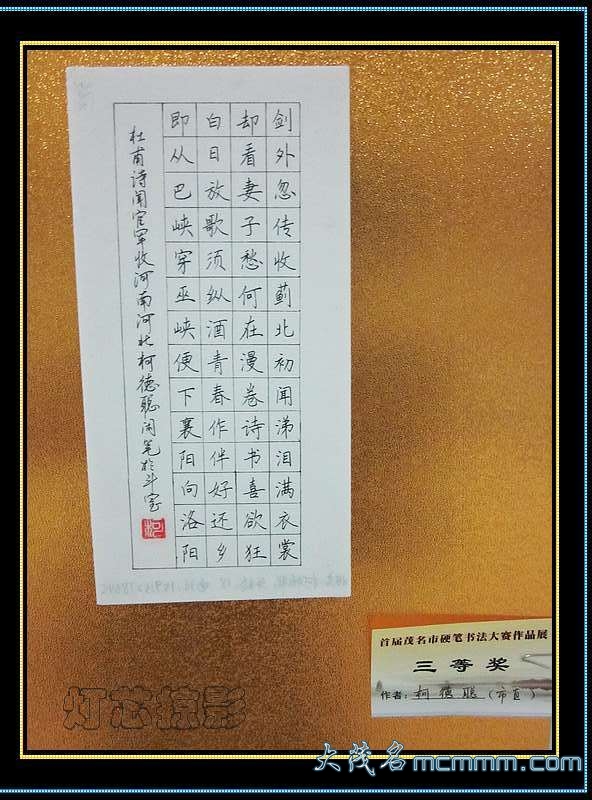 剑外忽传收蓟北初闻涕泪满衣裳
却看妻子愁何在漫卷诗书喜欲狂
白日放歌须纵酒青春作伴好还乡
即从巴峡穿巫峡便下襄阳向洛阳
杜甫诗闻官军收河南河北柯德聪闲笔於斗室
首届茂名市硬笔书法大赛作品展
三等奖
作者：柯德聪（市直）
灯芯掠影
大茂名mcmmm.com